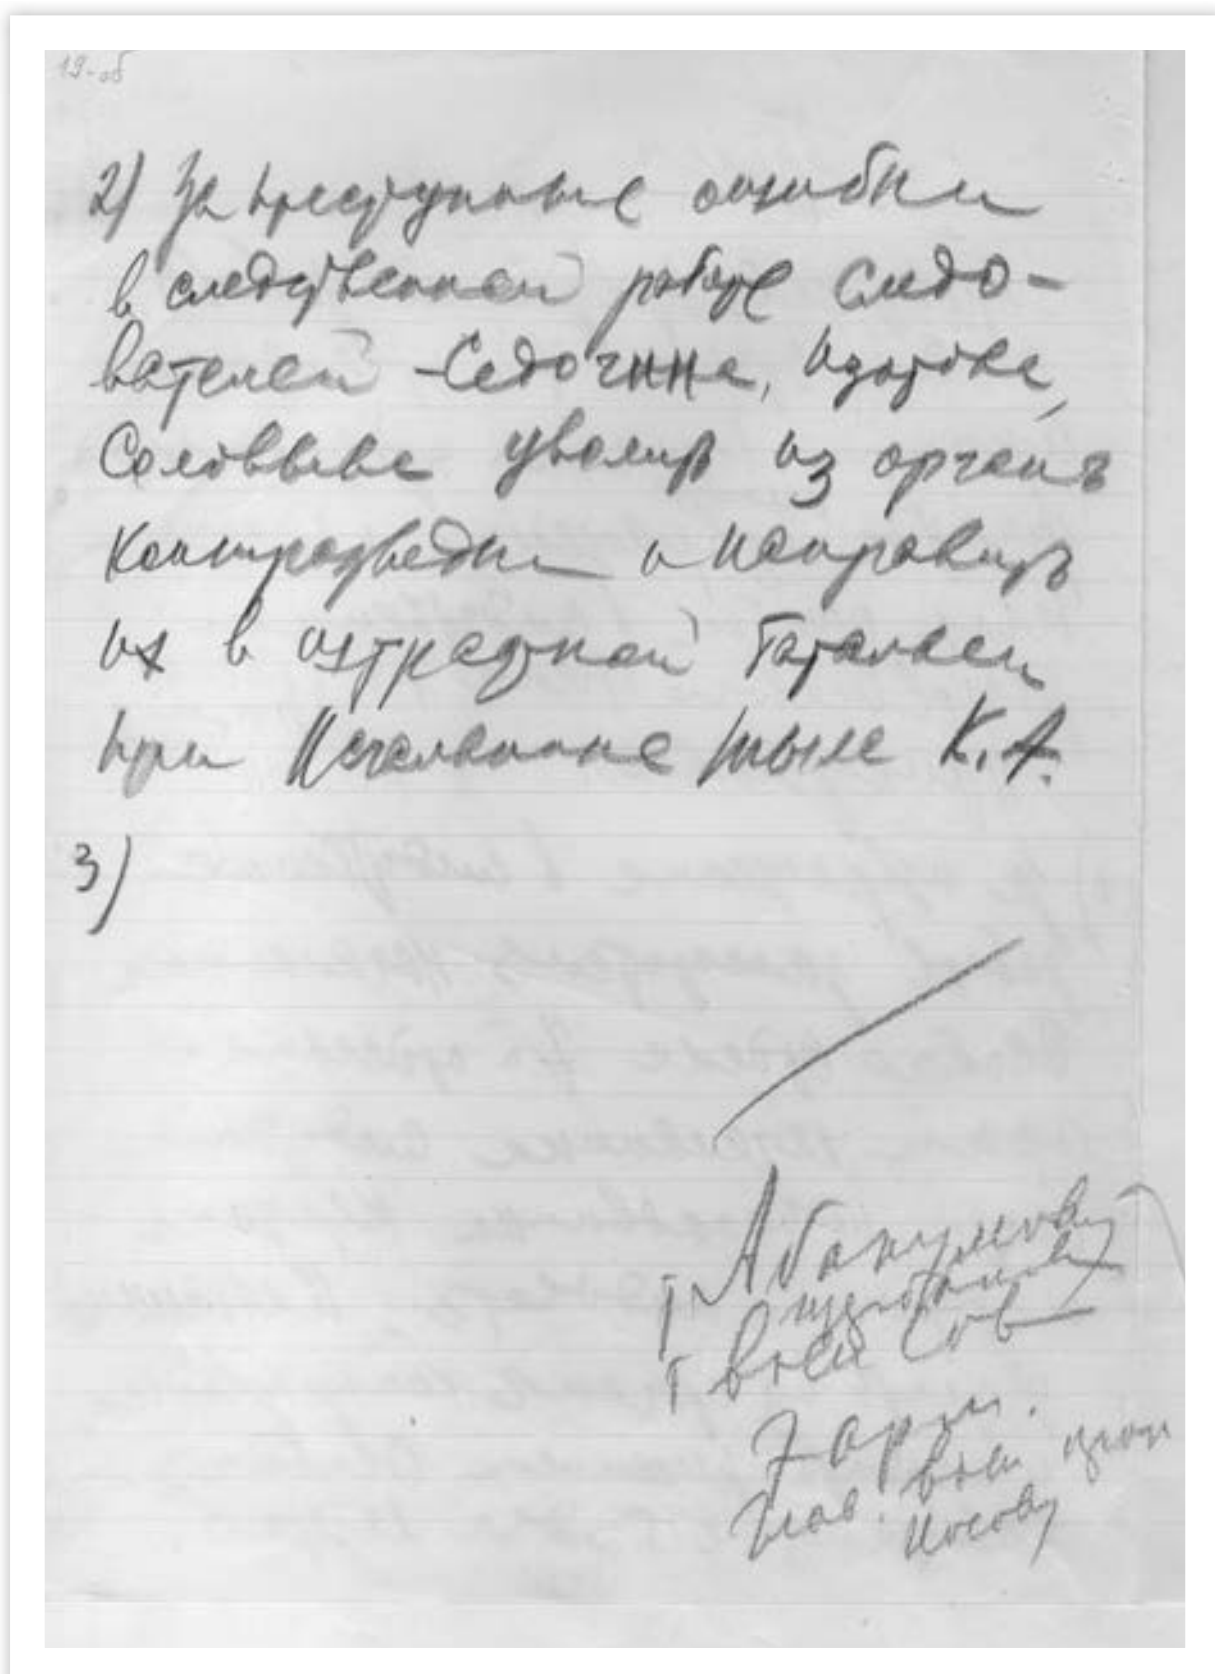 19-об
2) За преступные ошибки
в следственной работе следо-
вателей - Седогина, Изотова,
Соловьева уволить из органов
контрразведки и направить
их в штрафной батальон
при Начальнике тыла К.А.
3)
Т. Абакумову
Т
Глав. воен
Носову